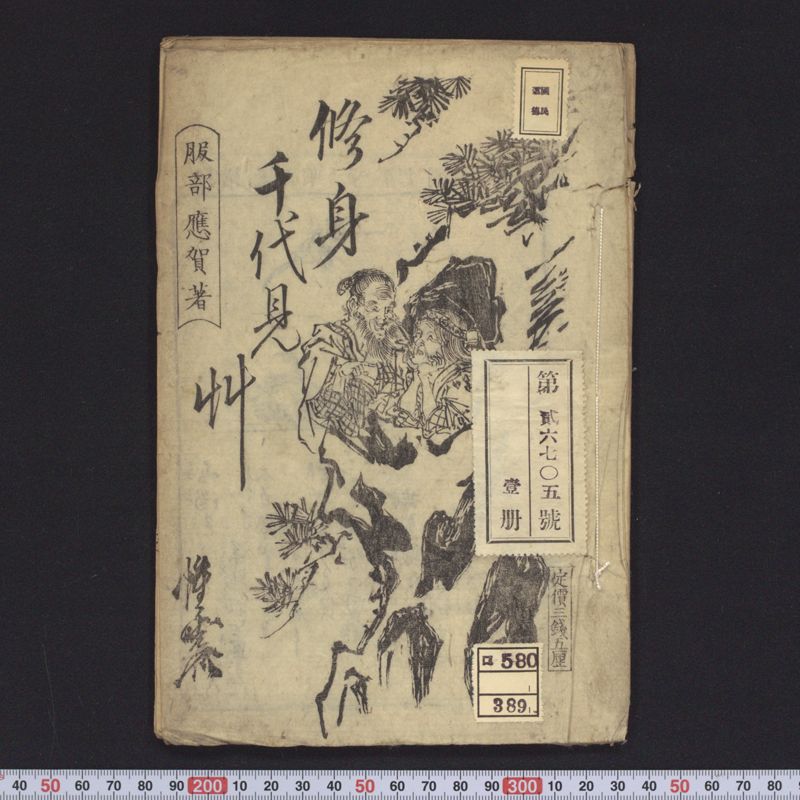 修身
千代見
艸
服部應賀著
惺々
定價三錢五厘
第貳六七〇五號
壹册
ロ 580
389
40 50 60 70 80 90 200 10 20 30 40 50 60 70 80 90 300 10 20 30 40 50 60 70 80